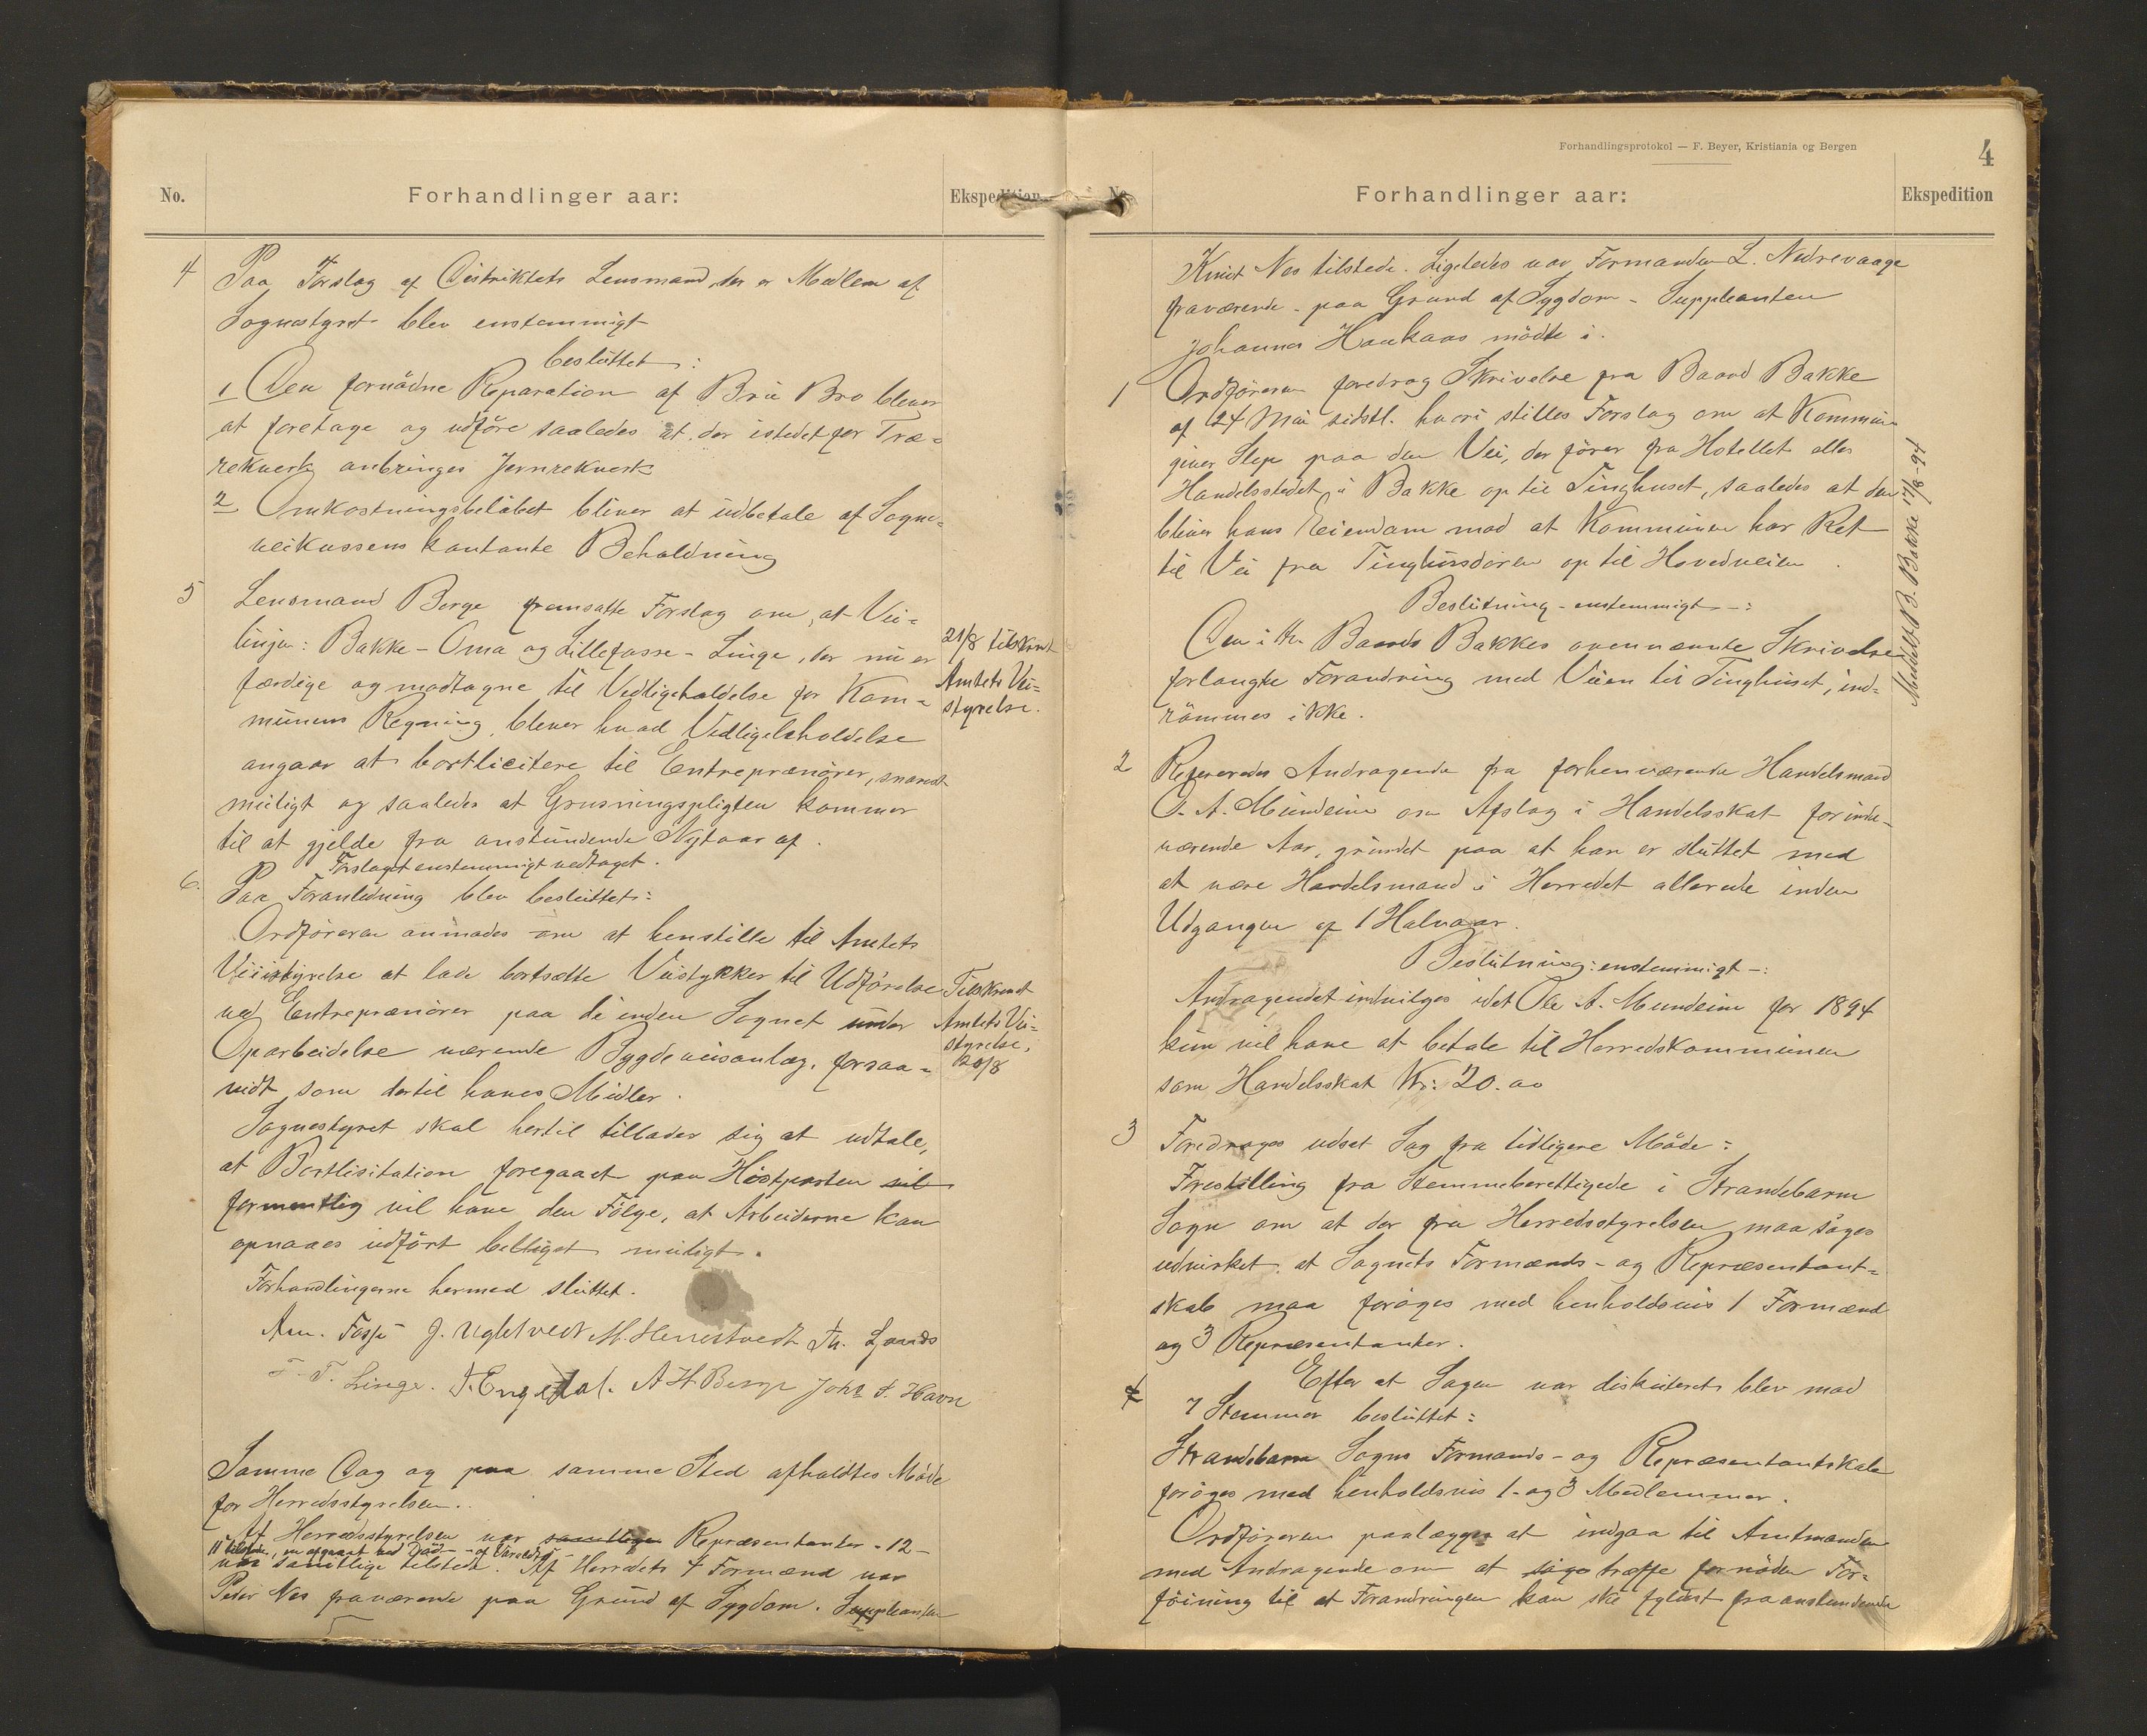 No.
Forhandlinger aar:
Ekspedition
4
Paa Forslag af Distriktets Lensmand, der er Medlem af
Sognestyret blev enstemmigt
besluttet:
1 Den fornødne Reparation af Brii Bro bliver
at foretage og udføre saaledes at der istedet for Træ-
rekverk anbringes Jernrekverk
2 Omkostningsbeløbet bliver at udbetale af Sogne-
veikassens kontante Beholdning
5
Lensmand Berge fremsatte Forslag om, at Vei-
linjen: Bakke - Oma og Lillefosse - Linge, der nu er
færdige og modtagne til Vedligeholdelse for Kom-
munens Regning, bliver hvad Vedligeholdelse
angaar at bortlicitere til Entreprenører, snarest
muligt og saaledes at Grusningspligten kommer
til at gjelde fra anstundende Nytaar af.
Forslaget enstemmigt vedtaget.
21/8 tilskrevet
Amtets Vei-
styrelse.
6.
Paa Foranledning blev besluttet:
Ordføreren anmodes om at henstille til Amtets
Veistyrelse at lade bortsætte Veistykker til Udførelse
ved Entreprenører paa de inden Sognet under
Oparbeidelse værende Bygdeveisanlæg, forsaa-
vidt som dertil haves Midler.
Tilskrevet
Amtets Vei-
styrelse,
20/8
Sognestyret skal hertil tillader sig at udtale,
at Bortlisitation foregaaet paa Høstparten vil
formentlig vil have den Følge, at Arbeiderne kan
opnaaes udført billigst muligt.
Forhandlingerne hermed sluttet.
Am. Fosse J. Ugletvedt M. Henestvedt Th. Sjonds
T. T. Linge. T. Engedal. A H Berge Joh. T. Havn
Samme Dag og paa samme Sted afholdtes Møde
for Herredsstyrelsen.
Af Herredsstyrelsen var samtlige Repræsentanter - 12 -
11 tilstede, en afgaaet ved Død -
var samtlige tilstede. Af Herredets 4 Formænd var
Peder Nes fraværende paa Grund af Sygdom. Suppleanten
Forhandlingsprotokol — F. Beyer, Kristiania og Bergen
4
No.
Forhandlinger aar:
Ekspedition
Knut Nes tilstede. Ligeledes var Formanden L. Nedrevaage
fraværende - paa Grund af Sygdom - Suppleanten
Johannes Haukaas mødte i.
1
Ordføreren foredrog Skrivelse fra Baard Bakke
af 24 Mai sidstl. hvori stilles Forslag om at Kommunen
giver Slep paa den Vei, der fører fra Hotellet eller
Handelsstedet i Bakke op til Tinghuset, saaledes at den
bliver hans Eiendom mod at Kommunen har Ret
til Vei fra Tinghusdøren op til Hovedveien.
Beslutning - enstemmigt -:
Den i Hr. Baard Bakkes ovennævnte Skrivelse
forlangte Forandring med Veien til Tinghuset, ind-
rømmes ikke.
Meddelt B. Bakke 17/8-94
2
Refereredes Andragende fra forhenværende Handelsmand
O. A. Mundeim om Afslag i Handelsskat for inde-
værende Aar, grundet paa at han er sluttet med
at være Handelsmand i Herredet allerede inden
Udgangen af 1 Halvaar.
Beslutning: enstemmigt -:
Andragendet indvilges idet Ole A. Mundeim for 1894
kun vil have at betale til Herredskommunen
som Handelsskat Kr: 20.00
3
Foredroges udsat Sag fra tidligere Møde:
Forestilling fra Stemmeberettigede i Strandebarm
Sogn om at der fra Herredsstyrelsen maa søges
udvirket at Sognets Formands- og Repræsentant-
skab maa forøges med henholdsvis 1 Formænd
og 3 Repræsentanter.
Efter at Sagen var diskuteret blev mod
7 Stemmer besluttet:
Strandebarm Sogns Formands- og Repræsentantskab
forøges med henholdsvis 1- og 3 Medlemmer.
Ordføreren paalægges at indgaa til Amtmanden
med Andragende om at søge træffe fornøden For-
føining til at Forandringen kan ske fyldest fra anstundende